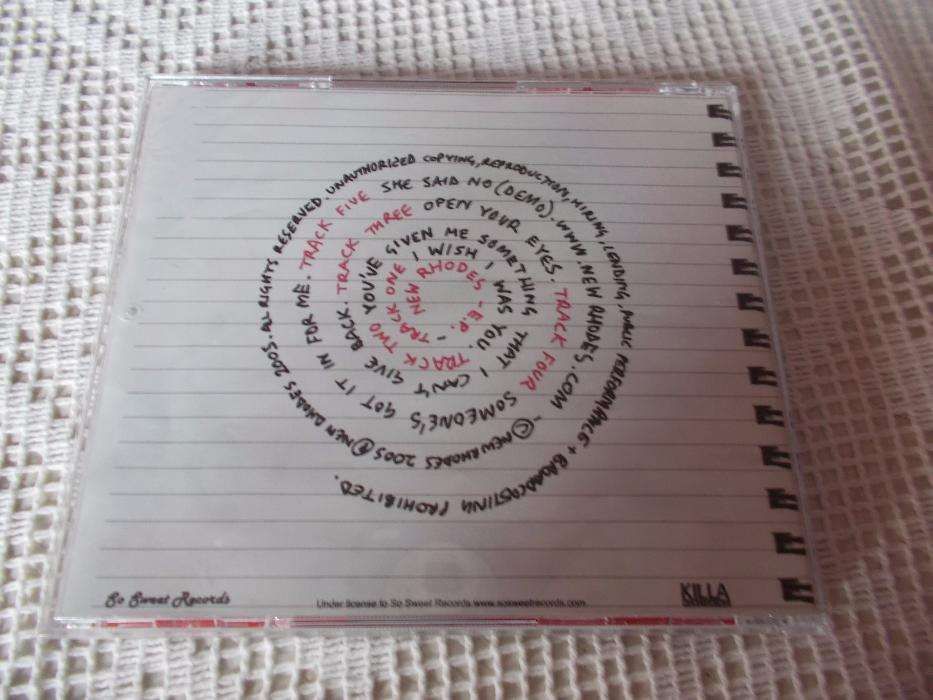 NEW RHODES - E.P. - TRACK ONE I WISH I WAS YOU. TRACK TWO YOU'VE GIVEN ME SOMETHING THAT I CAN'T GIVE BACK. TRACK THREE OPEN YOUR EYES. TRACK FOUR SOMEONE'S GOT IT IN FOR ME. TRACK FIVE SHE SAID NO (DEMO). WWW.NEWRHODES.COM - © NEW RHODES 2005 ℗ NEW RHODES 2005. ALL RIGHTS RESERVED. UNAUTHORIZED COPYING, REPRODUCTION, HIRING, LENDING, PUBLIC PERFORMANCE + BROADCASTING PROHIBITED.
So Sweet Records
Under license to So Sweet Records www.sosweetrecords.com
KILLA